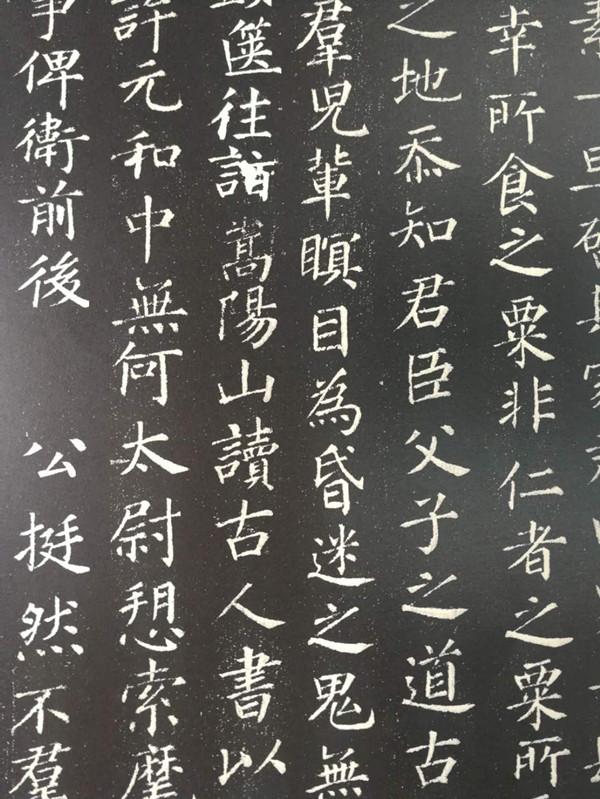 一旦破其家
幸所食之粟非仁者之粟所
之地忝知君臣父子之道古
羣児輩瞑目為昬迷之鬼無
篋往詣嵩陽山讀古人書以
許元和中無何太尉愬索麾
事俾衛前後 公挺然不羣